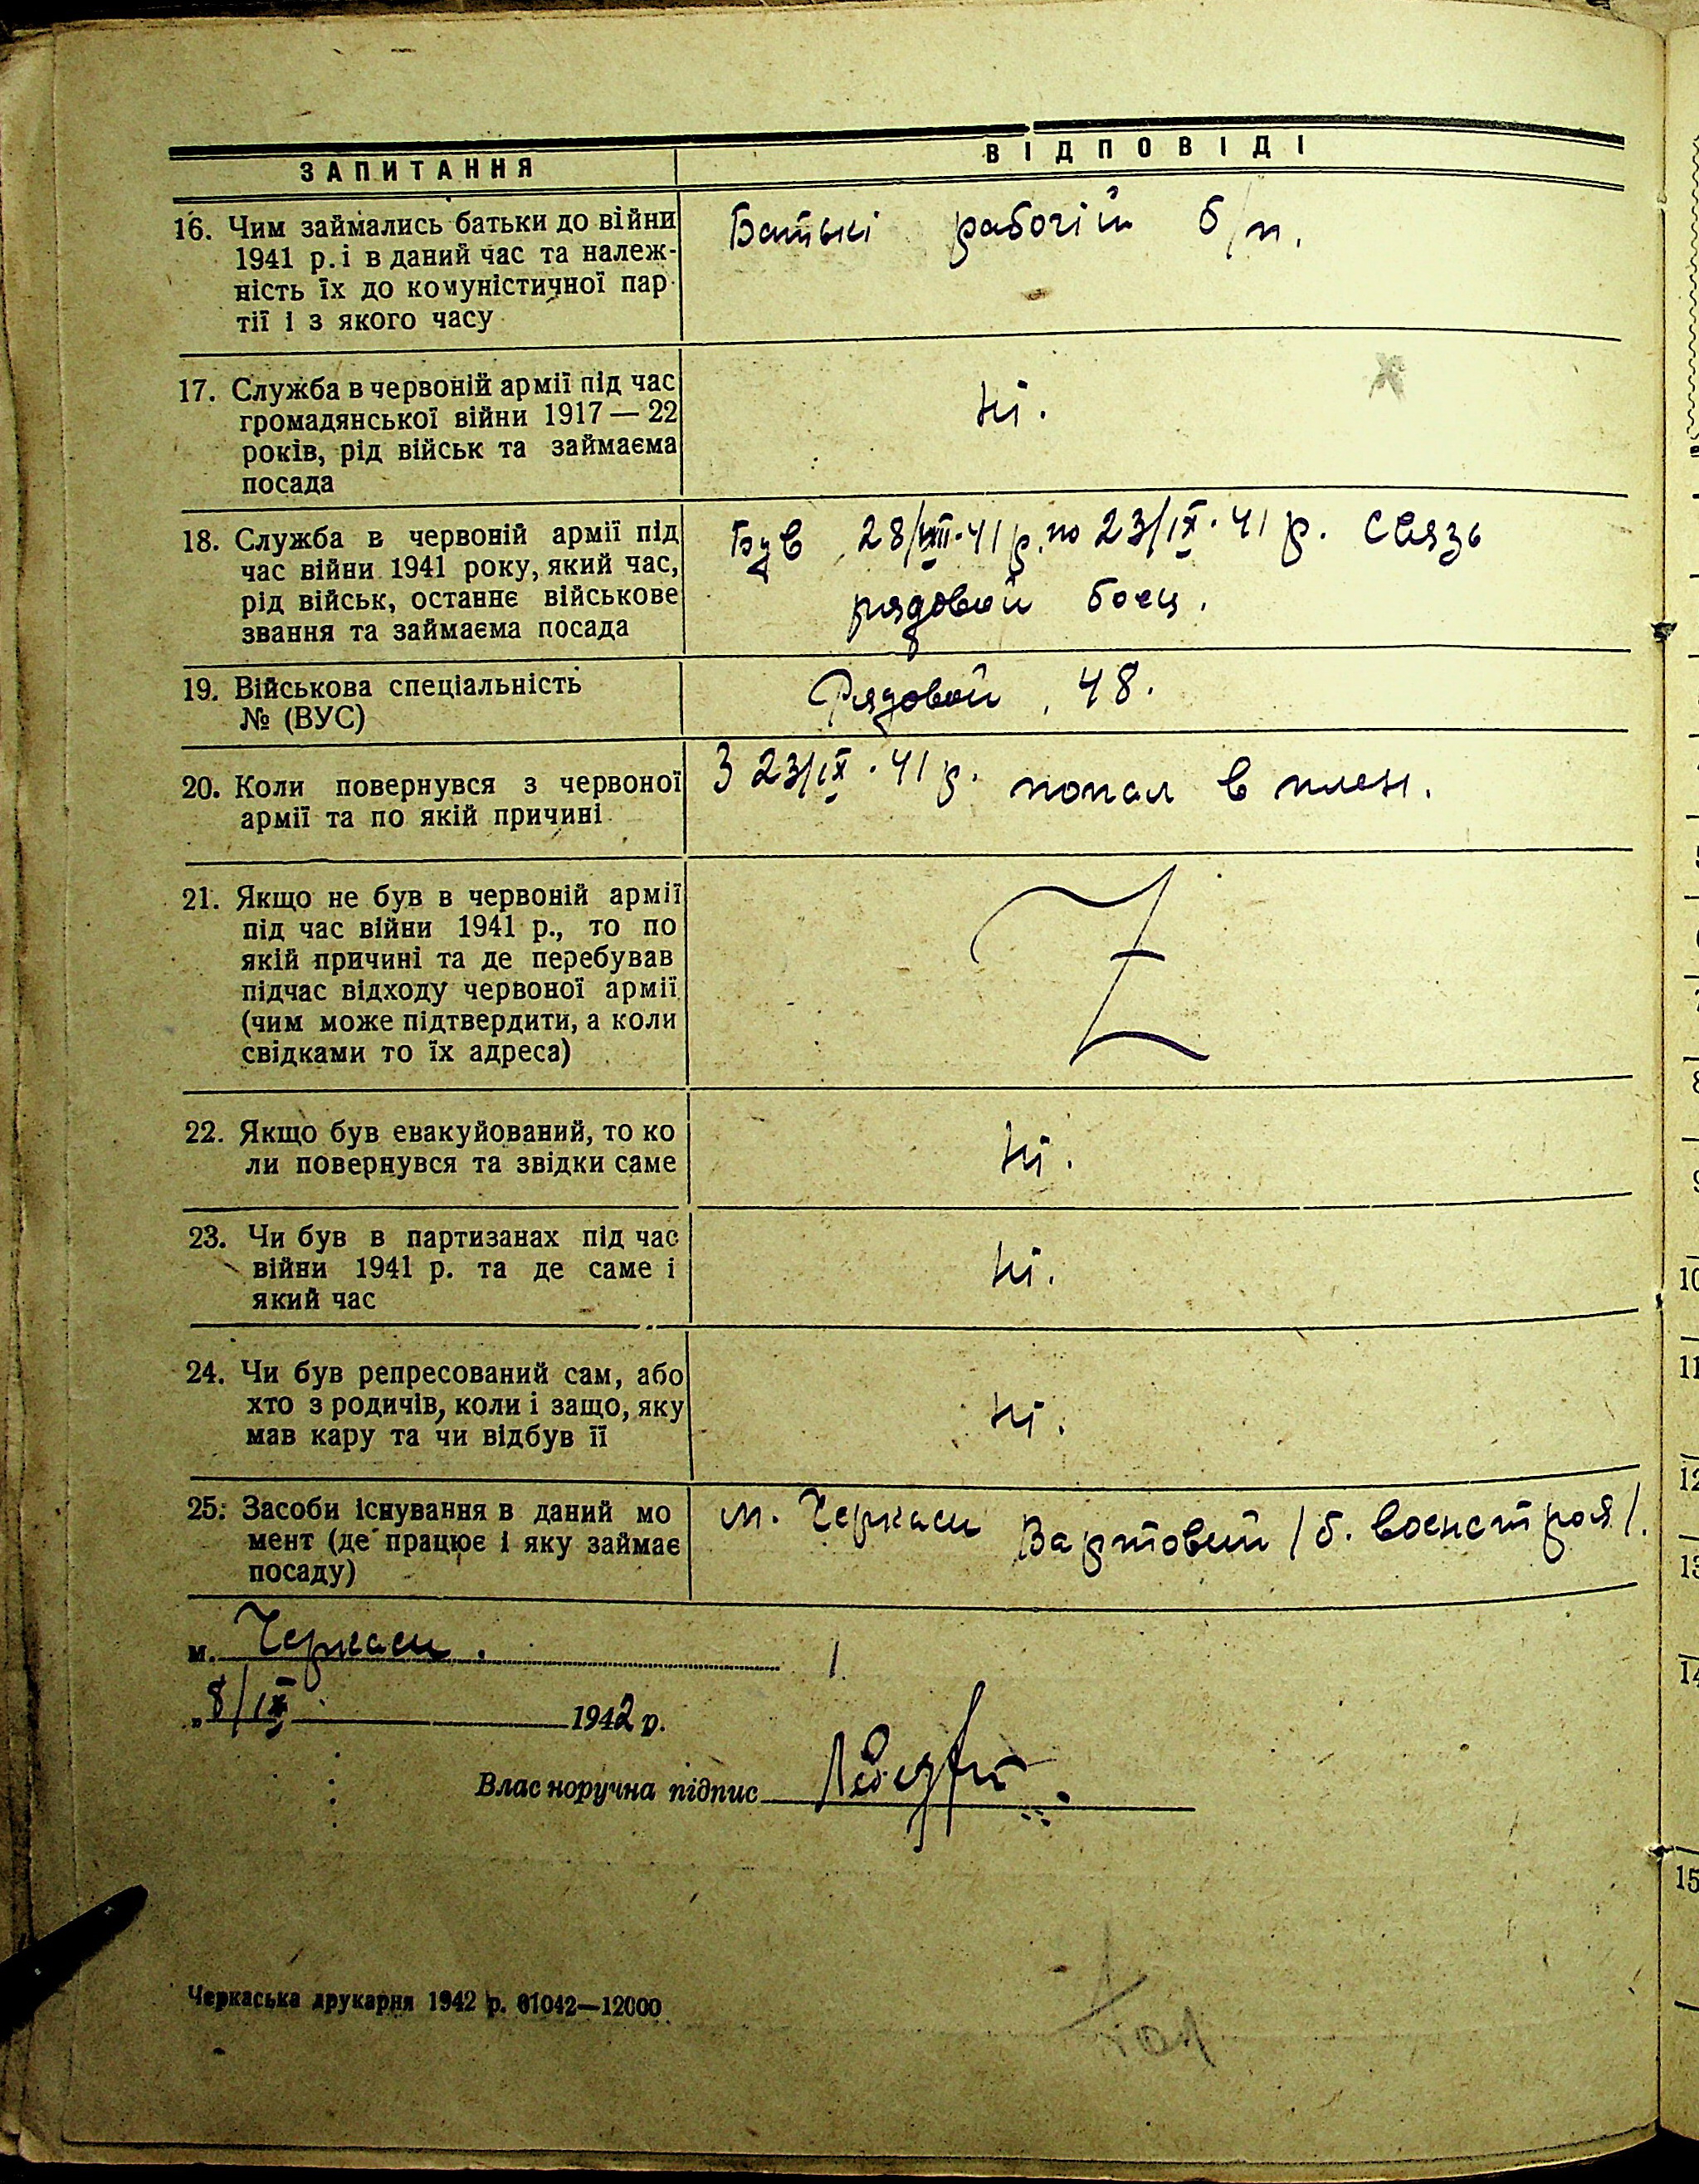 ЗАПИТАННЯ
ВІДПОВІДІ
16. Чим займались батьки до війни
1941 р. і в даний час та належ-
ність їх до комуністичної пар-
тії і з якого часу
Батькі рабочій б/п.
17. Служба в червоній армії під час
громадянської війни 1917 — 22
років, рід військ та займаєма
посада
Ні.
18. Служба в червоній армії під
час війни 1941 року, який час,
рід військ, останнє військове
звання та займаєма посада
Був 28/VIII-41 р. по 23/IX-41 р. связь
рядовой боец.
19. Військова спеціальність
№ (ВУС)
Рядовой, 48.
20. Коли повернувся з червоної
армії та по якій причині
З 23/IX-41 р. попал в плен.
21. Якщо не був в червоній армії
під час війни 1941 р., то по
якій причині та де перебував
підчас відходу червоної армії
(чим може підтвердити, а коли
свідками то їх адреса)
22. Якщо був евакуйований, то ко
ли повернувся та звідки саме
Ні.
23. Чи був в партизанах під час
війни 1941 р. та де саме і
який час
Ні.
24. Чи був репресований сам, або
хто з родичів, коли і защо, яку
мав кару та чи відбув її
Ні.
25. Засоби існування в даний мо
мент (де працює і яку займає
посаду)
м. Черкаси Вартовий /б. военстроя/.
м. Черкаси.
„8/IX 1942 р.
Власноручна підпис
Черкаська друкарня 1942 р. 01042—12000
10
11
12
13
14
15